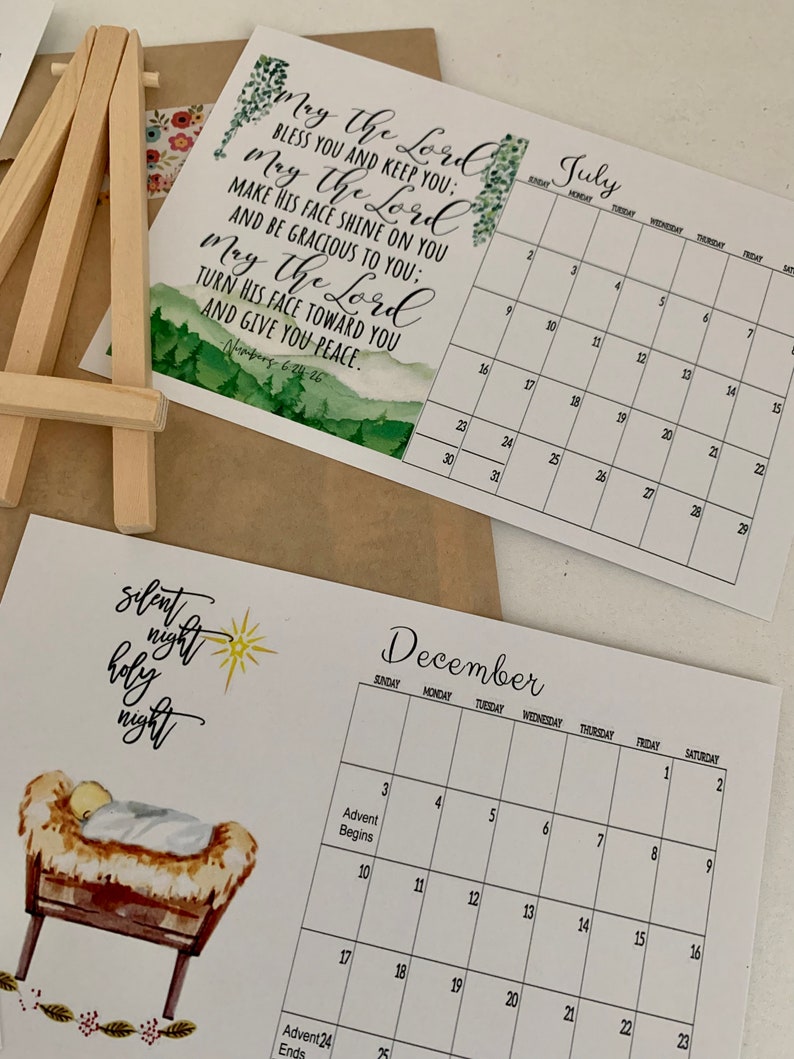 May the Lord
BLESS YOU AND KEEP YOU;
May the Lord
MAKE HIS FACE SHINE ON YOU
AND BE GRACIOUS TO YOU;
May the Lord
TURN HIS FACE TOWARD YOU
AND GIVE YOU PEACE.
-Numbers 6:24-26
July
SUNDAY MONDAY TUESDAY WEDNESDAY THURSDAY FRIDAY
2 3 4 5 6 7 8
9 10 11 12 13 14 15
16 17 18 19 20 21 22
23 24 25 26 27 28 29
30 31
silent
night
holy
night
December
SUNDAY MONDAY TUESDAY WEDNESDAY THURSDAY FRIDAY SATURDAY
1 2
3 4 5 6 7 8 9
Advent
Begins
10 11 12 13 14 15 16
17 18 19 20 21 22 23
Advent 24 25
Ends